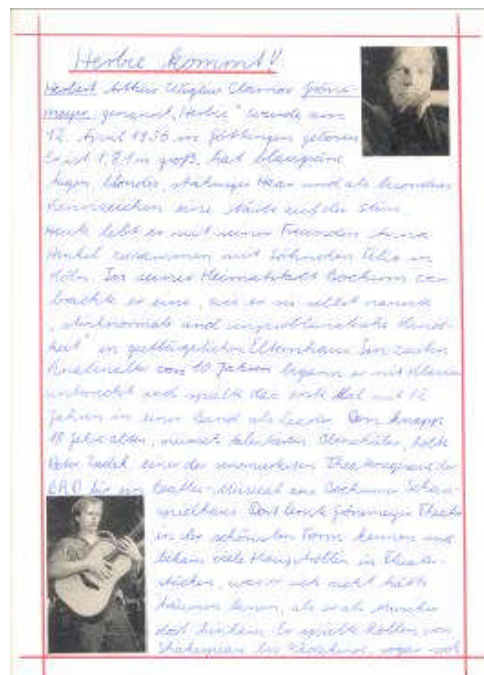 Herbie kommt!
Herbert Arthur Wiglev Clamor Gröne-
meyer, genannt „Herbie" wurde am
12. April 1956 in Göttingen geboren
Er ist 1,81m groß, hat blaugrüne
Augen, blondes, strähniges Haar und als besonderes
Kennzeichen eine Narbe auf der Stirn.
Heute lebt er mit seiner Freundin Anna
Henkel zusammen mit Söhnchen Felix in
Köln. In seiner Heimatstadt Bochum ver-
brachte er eine, wie er sie selbst nannte
„stinknormale und unproblematische Kind-
heit" in gutbürgerlichen Elternhaus. Im zarten
Knabenalter von 10 Jahren begann er mit Klavier-
unterricht und spielte das erste Mal mit 12
Jahren in einer Band als Leader. Den knapp
18 Jahre alten, musisch talentierten Oberschüler, holte
Peter Zadek, einer der renomiertesten Theaterregisseure der
BRD für ein Beatles-Musical ans Bochumer Schau-
spielhaus. Dort lernte Grönemeyer Theater
in der schönsten Form kennen und
bekam viele Hauptrollen in Theater-
stücken, was er sich nicht hätte
träumen lassen, als er als Musiker
dort hinkam. Er spielte Rollen von
Shakespeare bis sogar noch